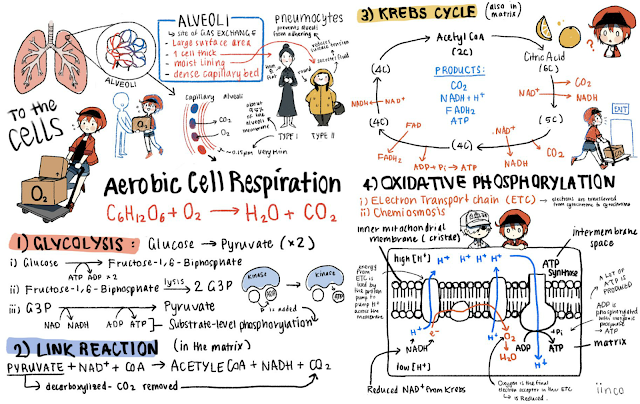 ALVEOLI
↳ site of GAS EXCHANGE
- Large surface area
- 1 cell thick
- moist lining
- dense capillary bed
pneumocytes
prevents alveoli
from adhering
reduces
surface tension
secretes fluid
thin &
flat
round
TYPE I
TYPE II
about
95%
of the
alveoli
membrane
ALVEOLI
Capillary
Alveoli
CO₂
O₂
0.15µm Very thin
TO the
CELLS
O₂
O₂
Aerobic Cell Respiration
C₆H₁₂O₆ + O₂ → H₂O + CO₂
1) GLYCOLYSIS: Glucose → Pyruvate (×2)
i) Glucose → Fructose-1,6-Biphosphate
ATP ADP ×2
ii) Fructose-1,6-Biphosphate lysis → 2 G3P
iii) G3P → Pyruvate
NAD NADH ADP ATP
Substrate-level phosphorylation
Kinase
Kinase
ADP
ATP
P is added
2) LINK REACTION (in the matrix)
PYRUVATE + NAD⁺ + COA → ACETYLE COA + NADH + CO₂
↳ decarboxylized - CO₂ removed
3) KREBS CYCLE (also in matrix)
?
Acetyl CoA
(2C)
Citric Acid
(6C)
CO₂
NAD⁺
NADH
(5C)
NAD⁺
NADH
CO₂
(4C)
ADP + Pi → ATP
FAD
FADH₂
(4C)
NADH NAD⁺
(4C)
PRODUCTS:
CO₂
NADH + H⁺
FADH₂
ATP
EXIT
4) OXIDATIVE PHOSPHORYLATION
i) Electron Transport chain (ETC) → electrons are transferred
from cytochrome to cytochrome
ii) Chemiosmosis
inner mitochondrial
membrane (cristae)
intermembrane
space
high [H⁺]
H⁺
H⁺
H⁺
H⁺
ATP
Synthase
energy
from
ETC is
used by
the protein
pump to
pump H⁺
across the
membrane
A LOT OF
ATP IS
PRODUCED
ADP is
phosphorylated
with inorganic
phosphate
→ ATP
H⁺
e⁻
H⁺
O₂
H₂O
NADH
+Pi
ADP
ATP
H⁺
matrix
low [H⁺]
Reduced NAD⁺ from Krebs
Oxygen is the final
electron acceptor in the ETC
↳ is Reduced.
iinco